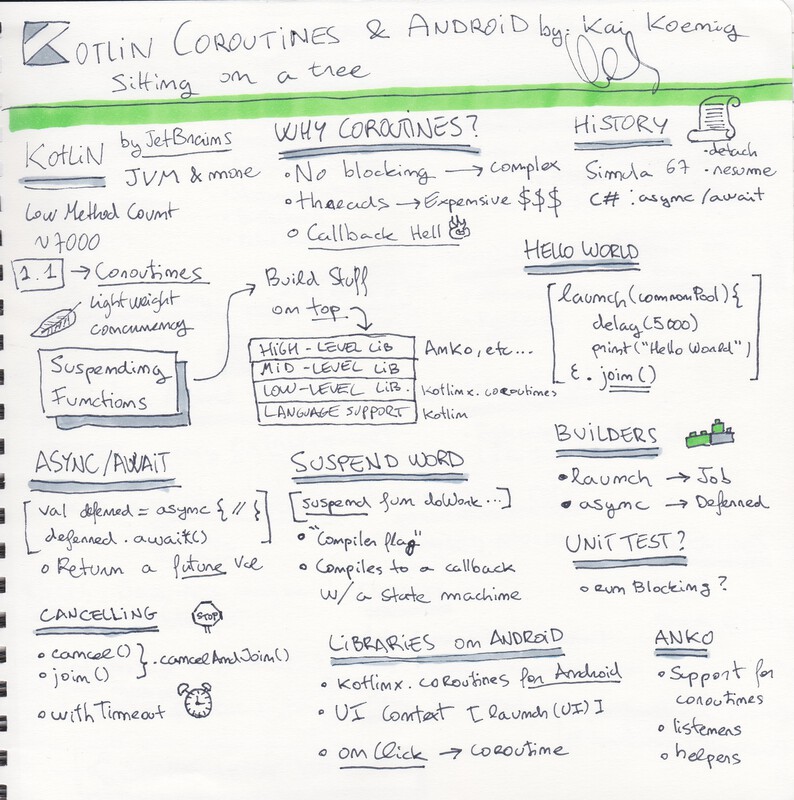 KOTLIN COROUTINES & ANDROID by: Kai Koenig
Sitting on a tree
KOTLIN
by JetBrains
JVM & more
Low Method Count
~7000
1.1 → Coroutines
Lightweight
concurrency
Suspending
Functions
WHY COROUTINES?
• No blocking → complex
• threads → Expensive $$$
• Callback Hell
Build Stuff
on top
HIGH-LEVEL LIB
Anko, etc...
MID-LEVEL LIB
LOW-LEVEL LIB.
Kotlinx.coroutines
LANGUAGE SUPPORT
Kotlin
HISTORY
Simula 67
• detach
• resume
C# : async/await
HELLO WORLD
launch(commonPool){
delay(5000)
print("Hello World")
}.join()
ASYNC/AWAIT
val deferred = async { // }
deferred.await()
• Return a future val
SUSPEND WORD
[suspend fun doWork...]
• "Compiler flag"
• Compiles to a callback
w/ a state machine
BUILDERS
• launch → Job
• async → Deferred
UNIT TEST?
• run Blocking?
CANCELLING
STOP
• cancel()
• join()
} .cancelAndJoin()
• withTimeout
LIBRARIES on ANDROID
• Kotlinx.coroutines for Android
• UI Context [launch(UI)]
• onClick → coroutine
ANKO
• Support for
coroutines
• listeners
• helpers